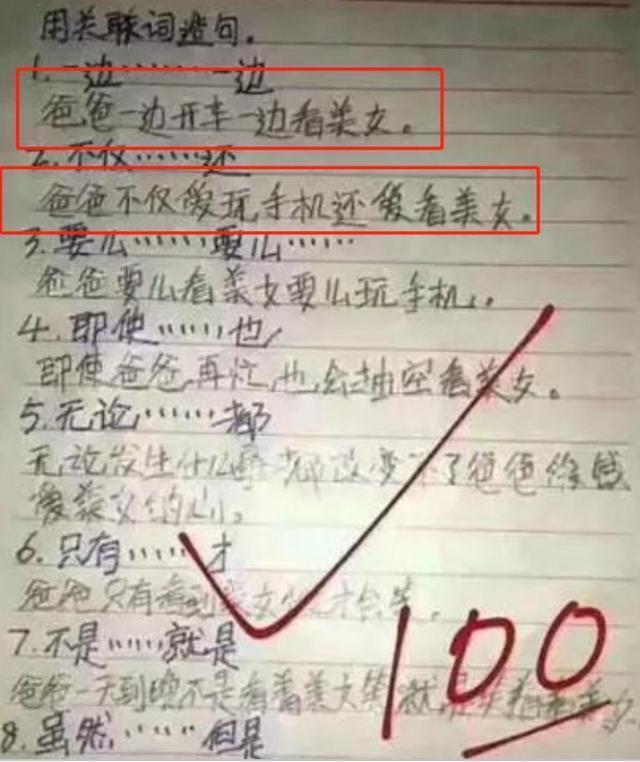 用关联词造句。
1.一边………一边
爸爸一边开车一边看美女。
2.不仅……还
爸爸不仅爱玩手机还爱看美女。
3.要么……要么……
爸爸要么看美女要么玩手机。
4.即使……也
即使爸爸再忙,也会抽空看美女。
5.无论……都
无论发生什么事都改变不了爸爸
爱美女的心。
6.只有……才
爸爸只有看到美女才会笑。
7.不是……就是
爸爸一天到晚不是看着美女笑就是
8.虽然……但是
100